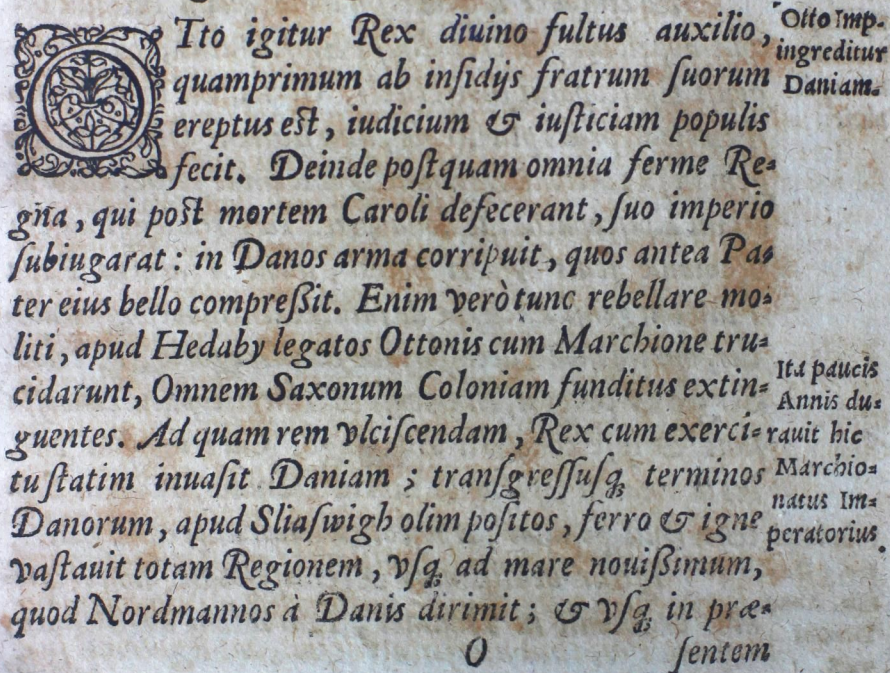 OTto igitur Rex diuino fultus auxilio,
quamprimum ab inſidijs fratrum ſuorum
ereptus eſt, iudicium & iuſticiam populis
fecit. Deinde poſtquam omnia ferme Re-
gña, qui poſt mortem Caroli defecerant, ſuo imperio
ſubiugarat: in Danos arma corripuit, quos antea Pa-
ter eius bello compreßit. Enim verò tunc rebellare mo-
liti, apud Hedaby legatos Ottonis cum Marchione tru-
cidarunt, Omnem Saxonum Coloniam funditus extin-
guentes. Ad quam rem vlciſcendam, Rex cum exerci-
tu ſtatim inuaſit Daniam; transgreſſusq́; terminos
Danorum, apud Sliaſwigh olim poſitos, ferro & igne
vaſtauit totam Regionem, vſq; ad mare nouißimum,
quod Nordmannos à Danis dirimit; & vſq; in præ-
O ſentem
Otto Imp.
ingreditur
Daniam.
Ita paucis
Annis du-
rauit hic
Marchio-
natus Im-
peratorius.